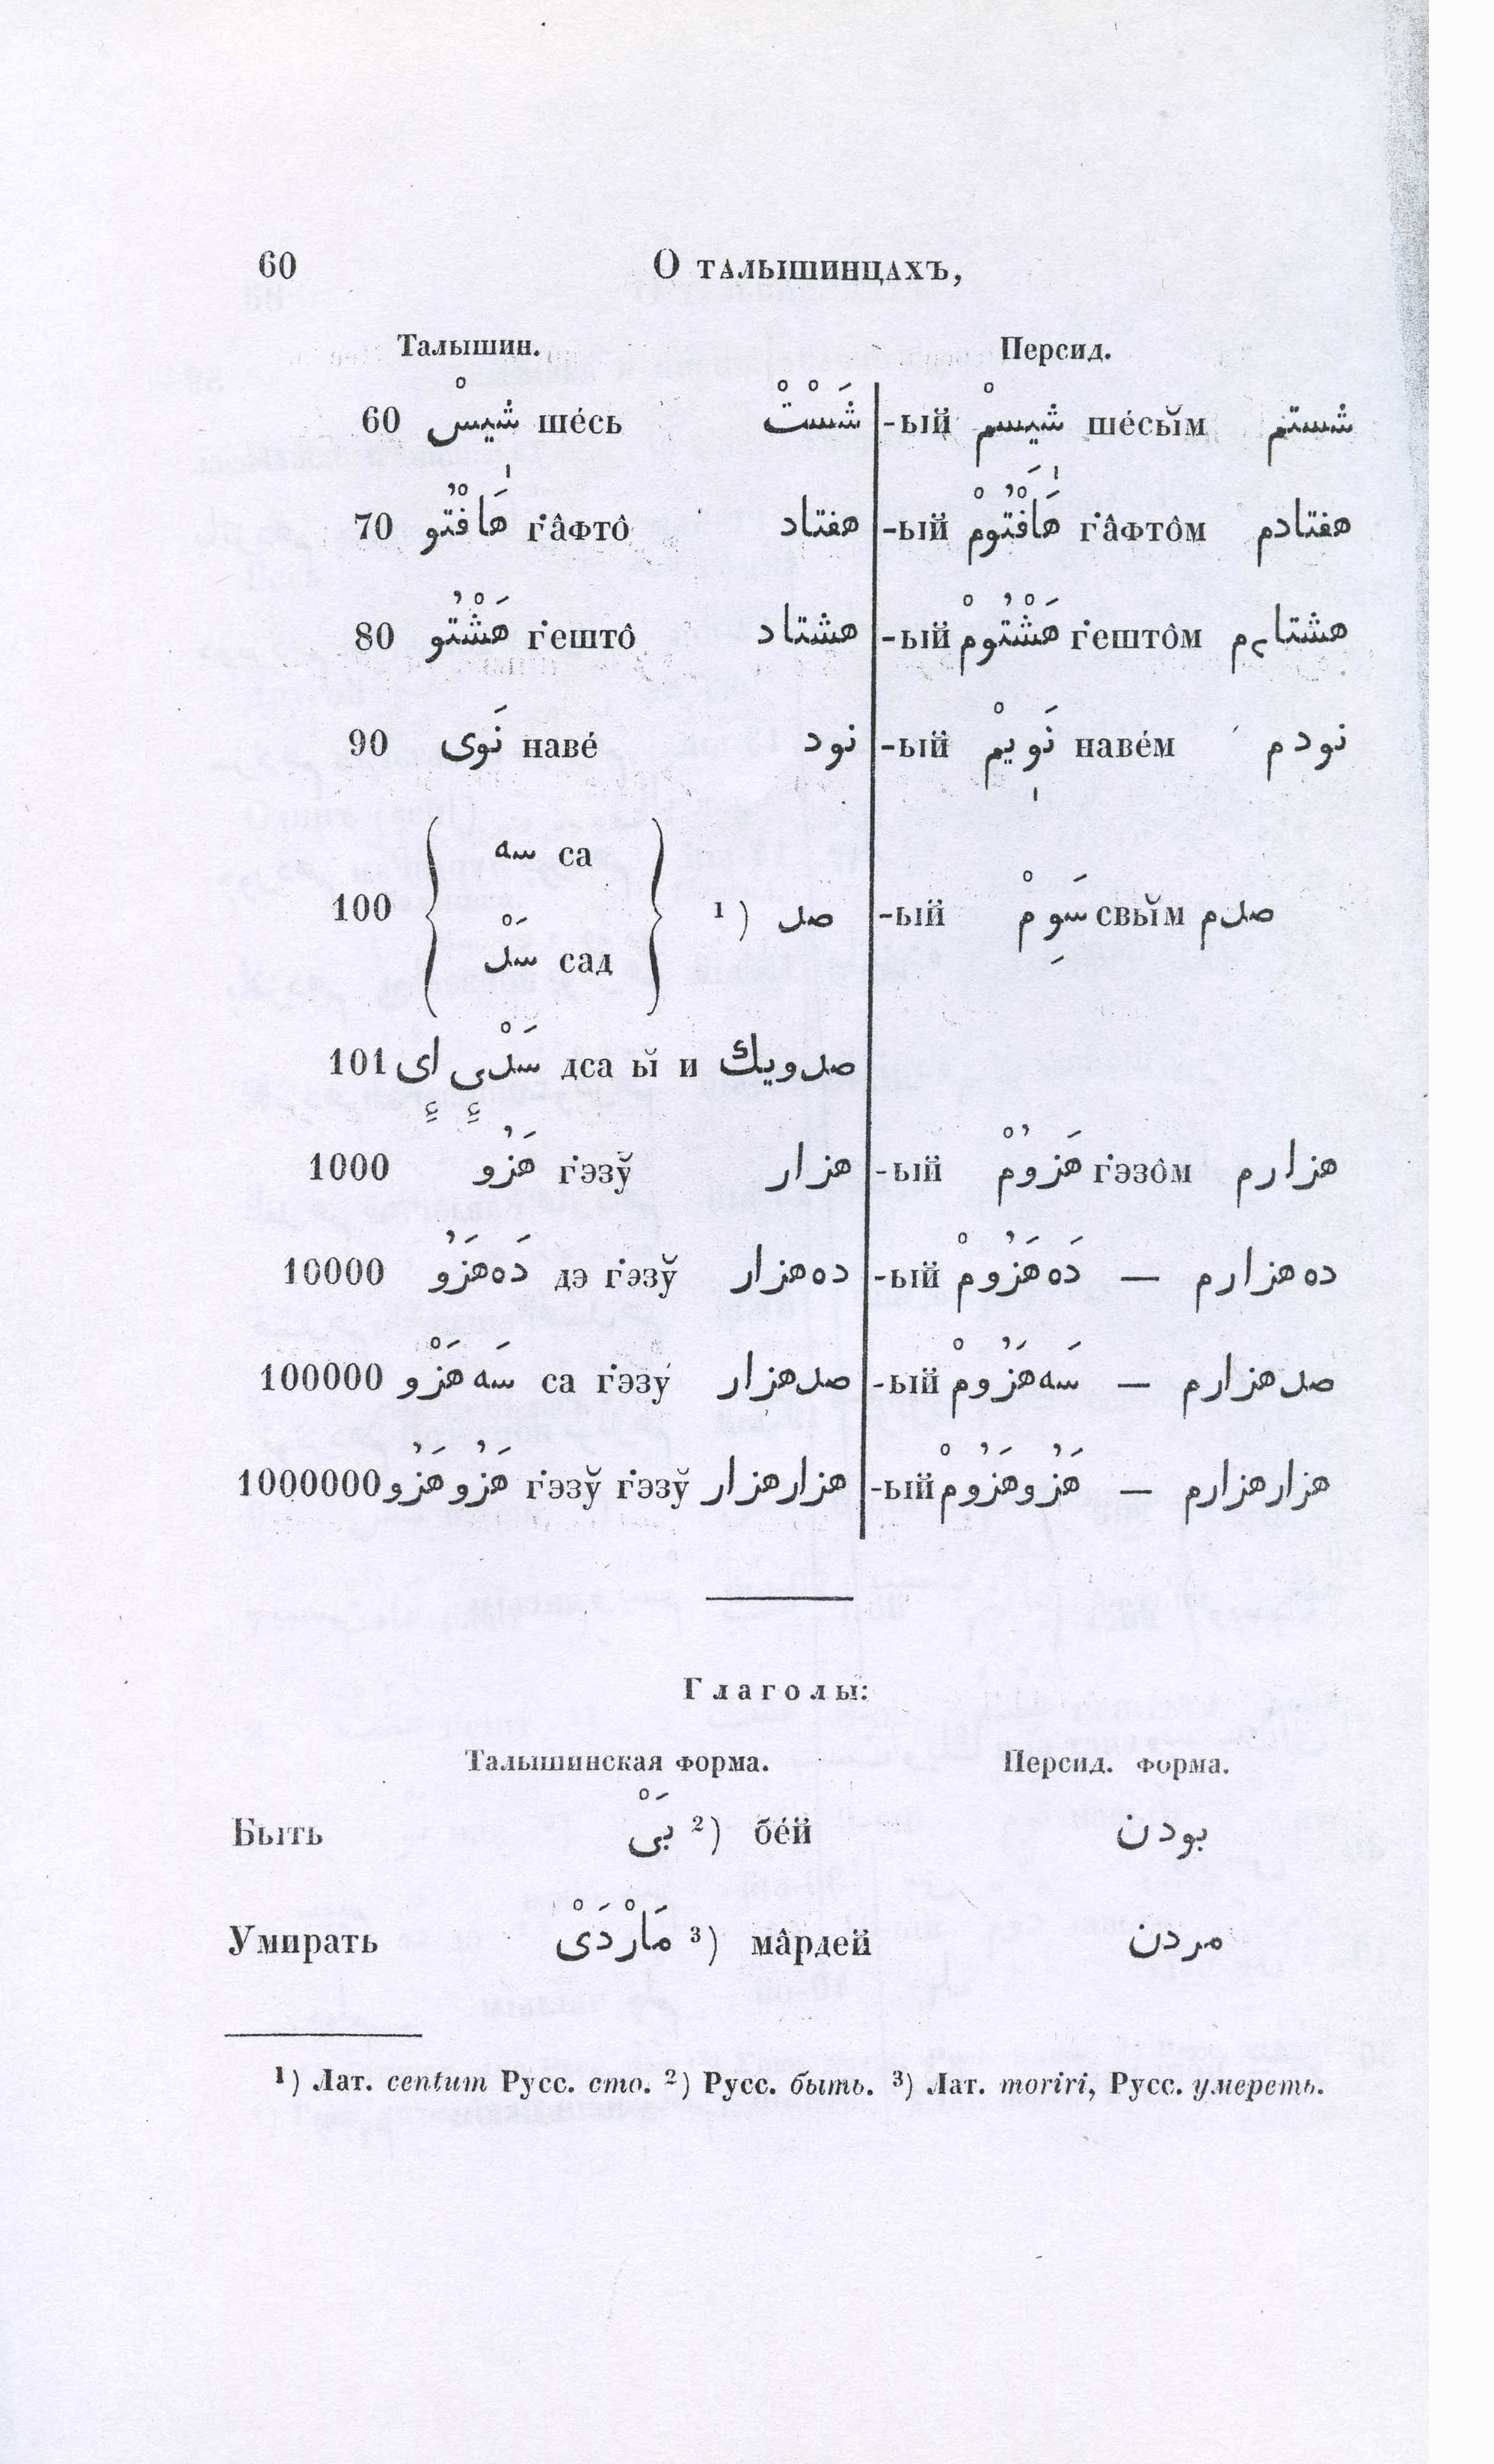 60 О ТАЛЫШИНЦАХЪ,
Талышин. Персид.
60 شيسْ ше́сь شَسْتْ -ый شيسمْ ше́сы̆м شستم
70 هَافْتُو г̇âфтô هفتاد -ый هَافْتُومْ г̇âфтôм هفتادم
80 هَشْتُو г̇ештô هشتاد -ый هَشْتُومْ г̇ештôм هشتادم
90 نَوى наве́ نود -ый نَوِيمْ наве́м نودم
سه са
100 صد ¹) -ый سَوِمْ свы̆м صدم
سَدْ сад
101 سَدْىٍ اٍى дса ы̆ и صدويك
1000 هَزُو г̇эзў هزار -ый هَزوُمْ г̇эзôм هزارم
10000 دَه هَزُو дэ г̇эзў ده هزار -ый دَه هَزُومْ — ده هزارم
100000 سَه هَزْو са г̇эзу́ صد هزار -ый سَه هَزُومْ — صد هزارم
1000000 هَزُو هَزُو г̇эзў г̇эзў هزار هزار -ый هَزُو هَزُومْ — هزار هزارم
Глаголы:
Талышинская форма. Персид. форма.
Быть بَىْ ²) бе́й بودن
Умирать مَارْدَىْ ³) мâрдей مردن
¹) Лат. centum Русс. сто. ²) Русс. быть. ³) Лат. moriri, Русс. умереть.